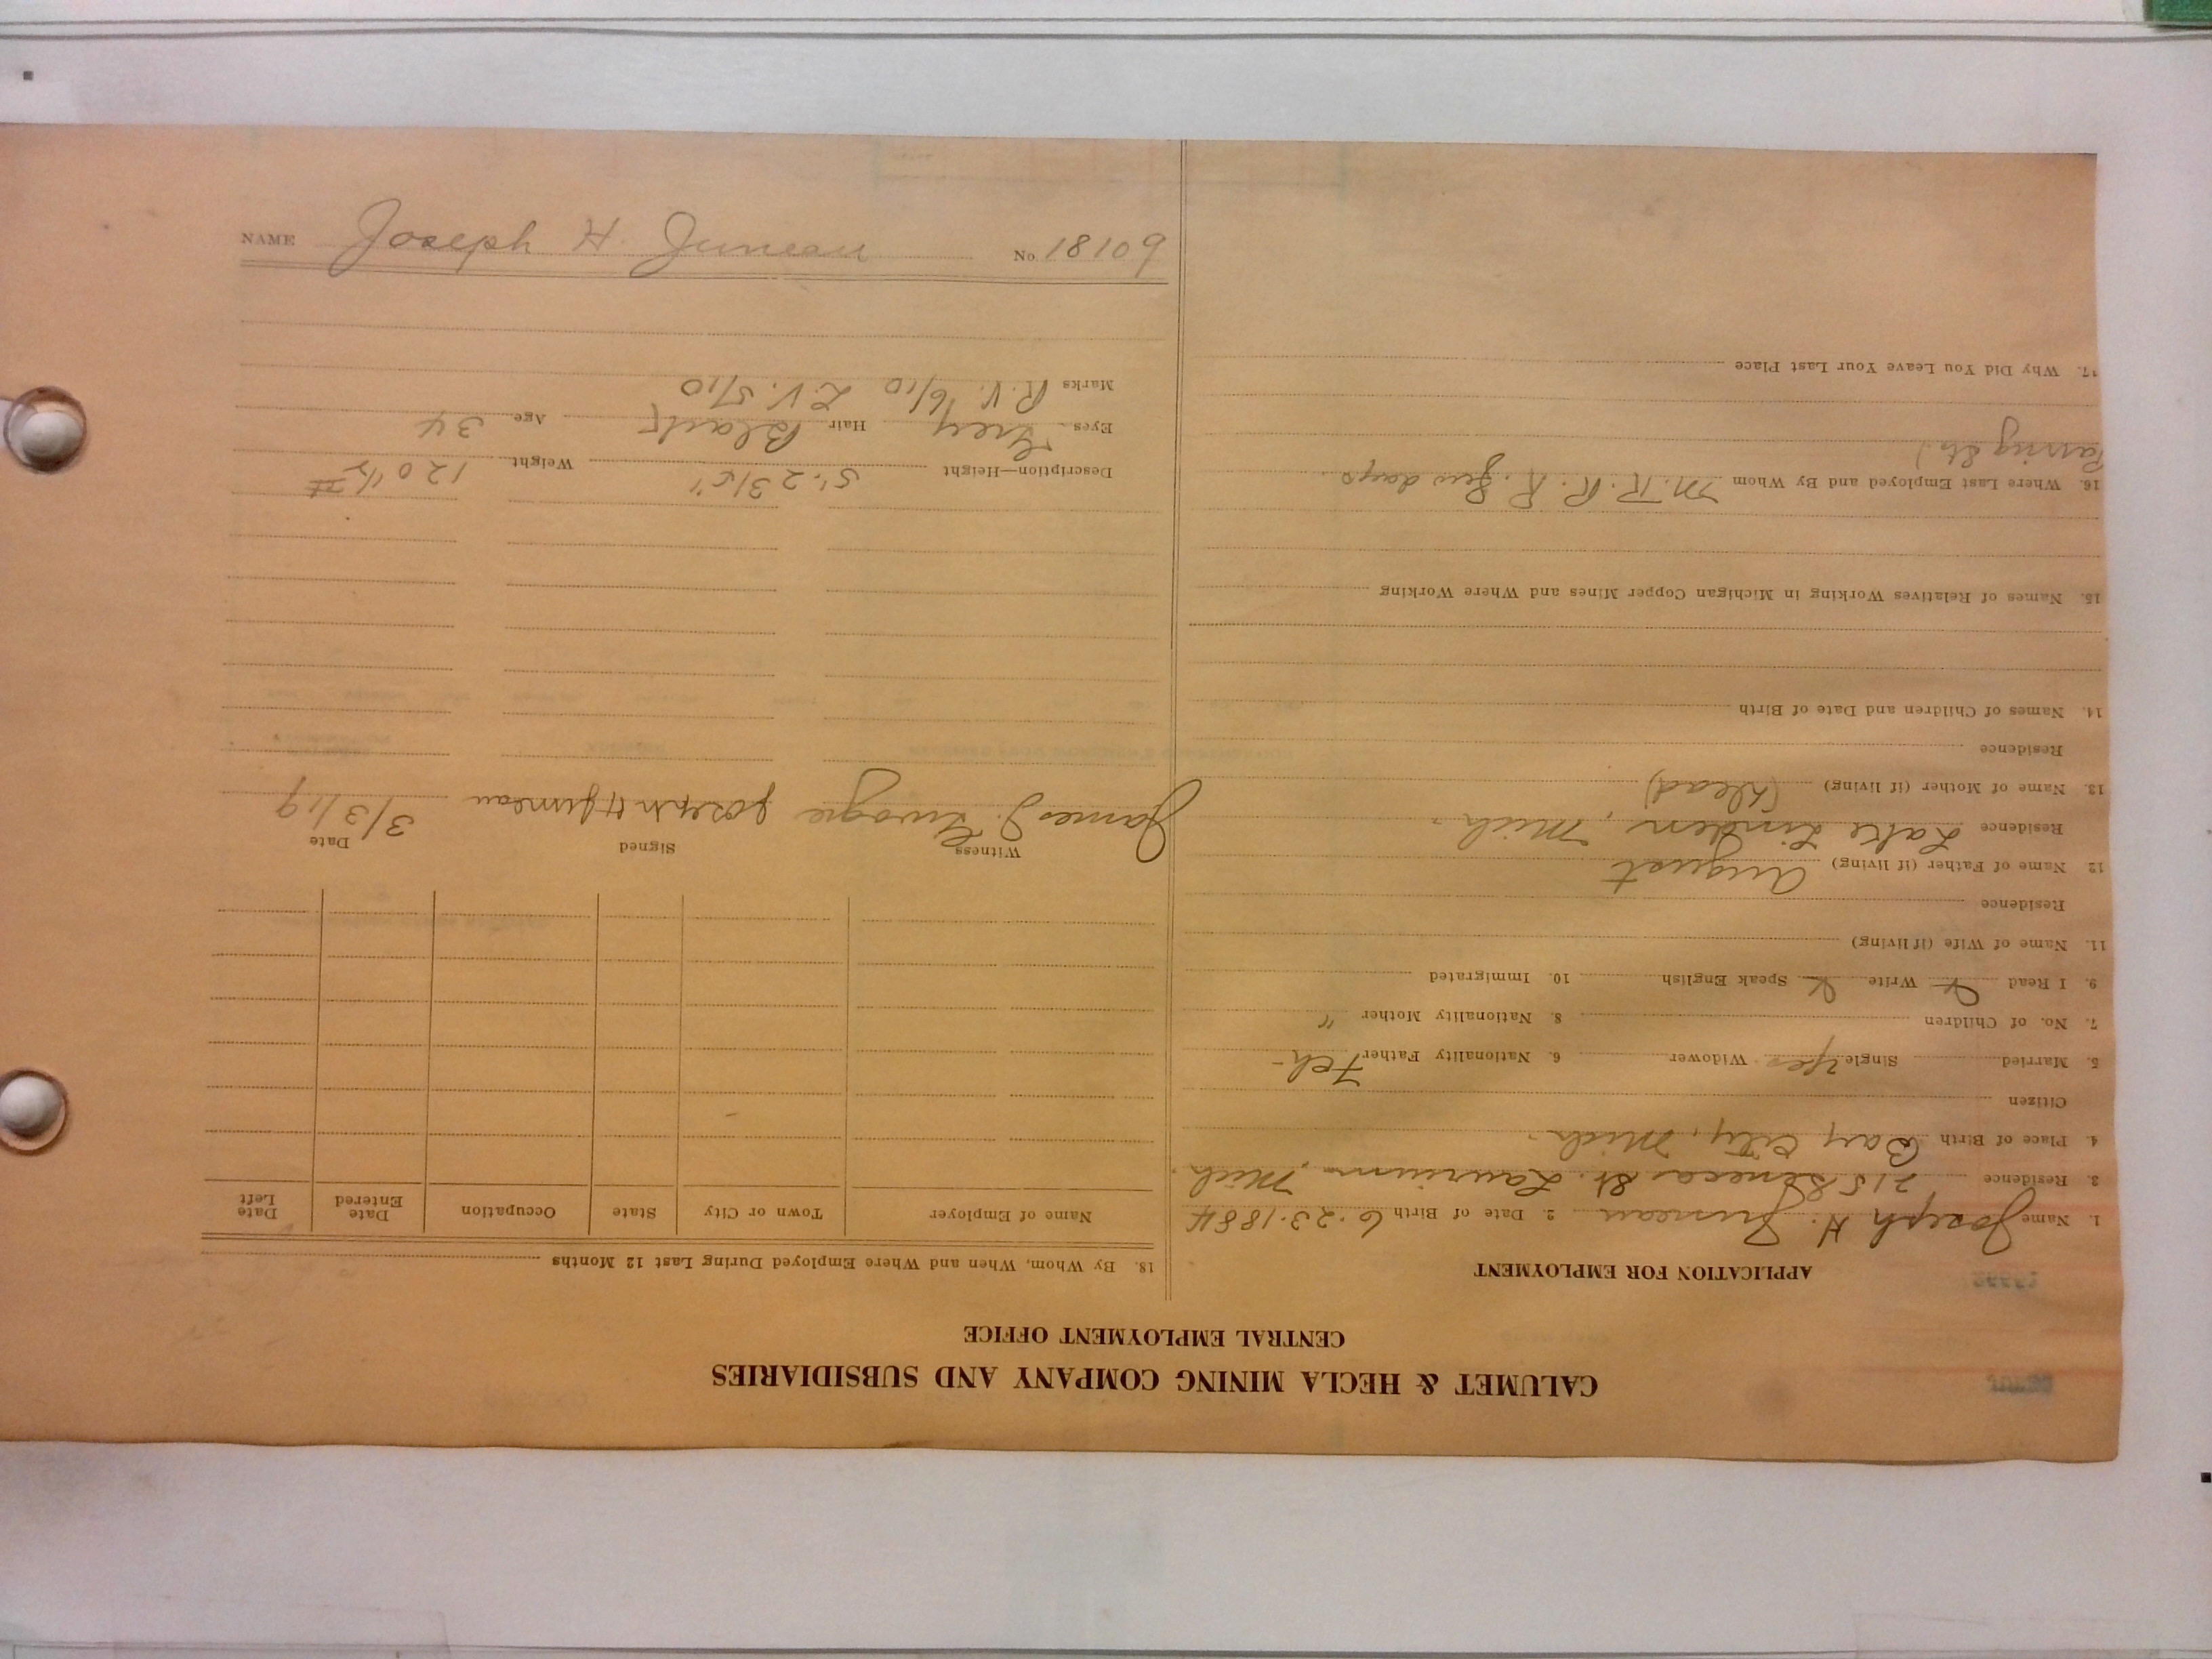 CALUMET & HECLA MINING COMPANY AND SUBSIDIARIES
CENTRAL EMPLOYMENT OFFICE
APPLICATION FOR EMPLOYMENT
1. Name Joseph H. Juneau 2. Date of Birth 6.23.1884
3. Residence 215 Seneca St. Laurium, Mich.
4. Place of Birth Bay City, Mich.
Citizen
5. Married Single Yes Widower 6. Nationality Father Fch.
7. No. of Children 8. Nationality Mother "
9. I Read Write Speak English 10. Immigrated
11. Name of Wife (if living)
Residence
12 Name of Father (if living) August
Residence Lake Linden, Mich.
13. Name of Mother (if living) (dead)
Residence
14. Names of Children and Date of Birth
15. Names of Relatives Working in Michigan Copper Mines and Where Working
16. Where Last Employed and By Whom M.R.R.R. few days
17. Why Did You Leave Your Last Place
18. By Whom, When and Where Employed During Last 12 Months
Name of Employer Town or City State Occupation Date Entered Date Left
Witness Signed Date
James J. Joseph H Juneau 3/3/19
Description—Height 5'. 2 3/5" Weight 120 1/2 #
Eyes Grey Hair Black Age 34
Marks R.V. 6/10 L.V. 5/10
NAME Joseph H. Juneau No. 18109